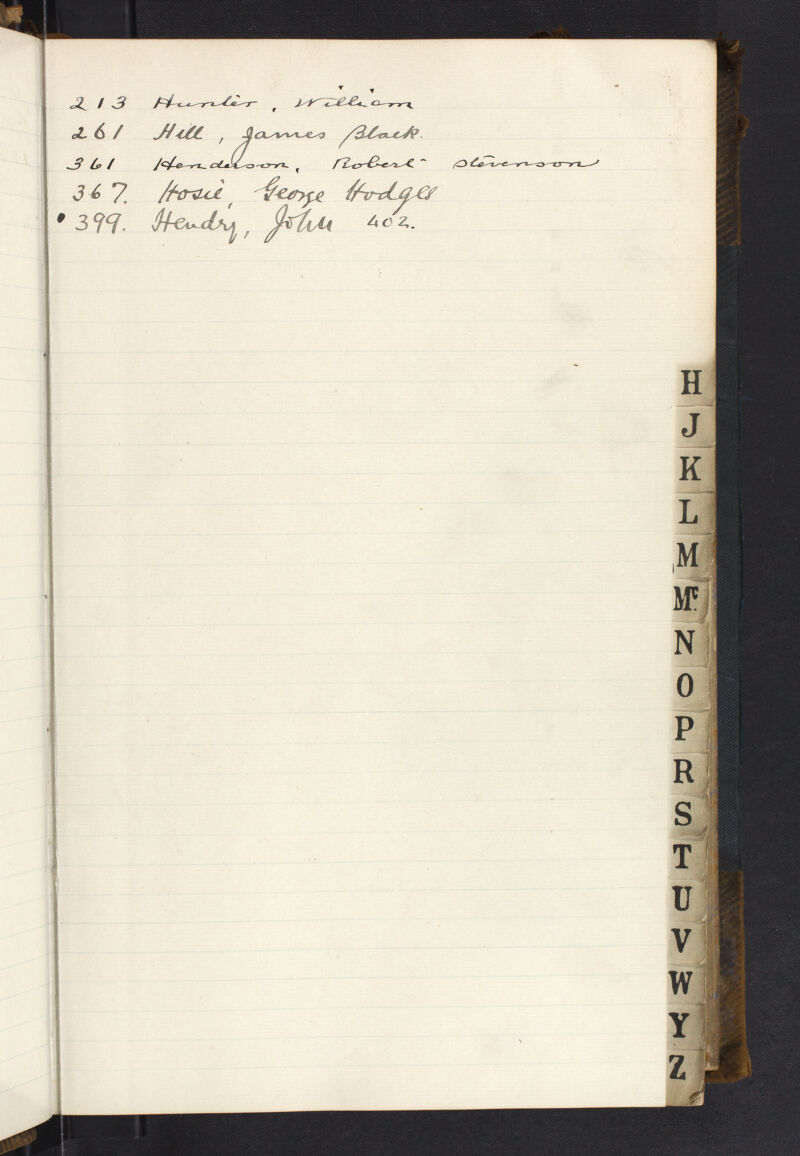 213 Hunter, William
261 Hill, James Black.
361 Henderson, Robert Stevenson
367. Hosie, George Hodges
• 399. Hendry, John 402.
H
J
K
L
M
Mc
N
O
P
R
S
T
U
V
W
Y
Z